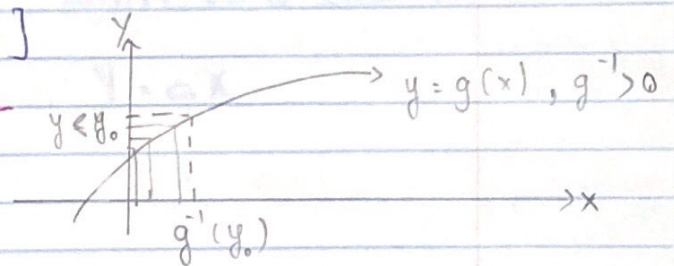 ]
Y
y = g(x) , g⁻¹>0
y<y₀
X
g⁻¹(y₀)